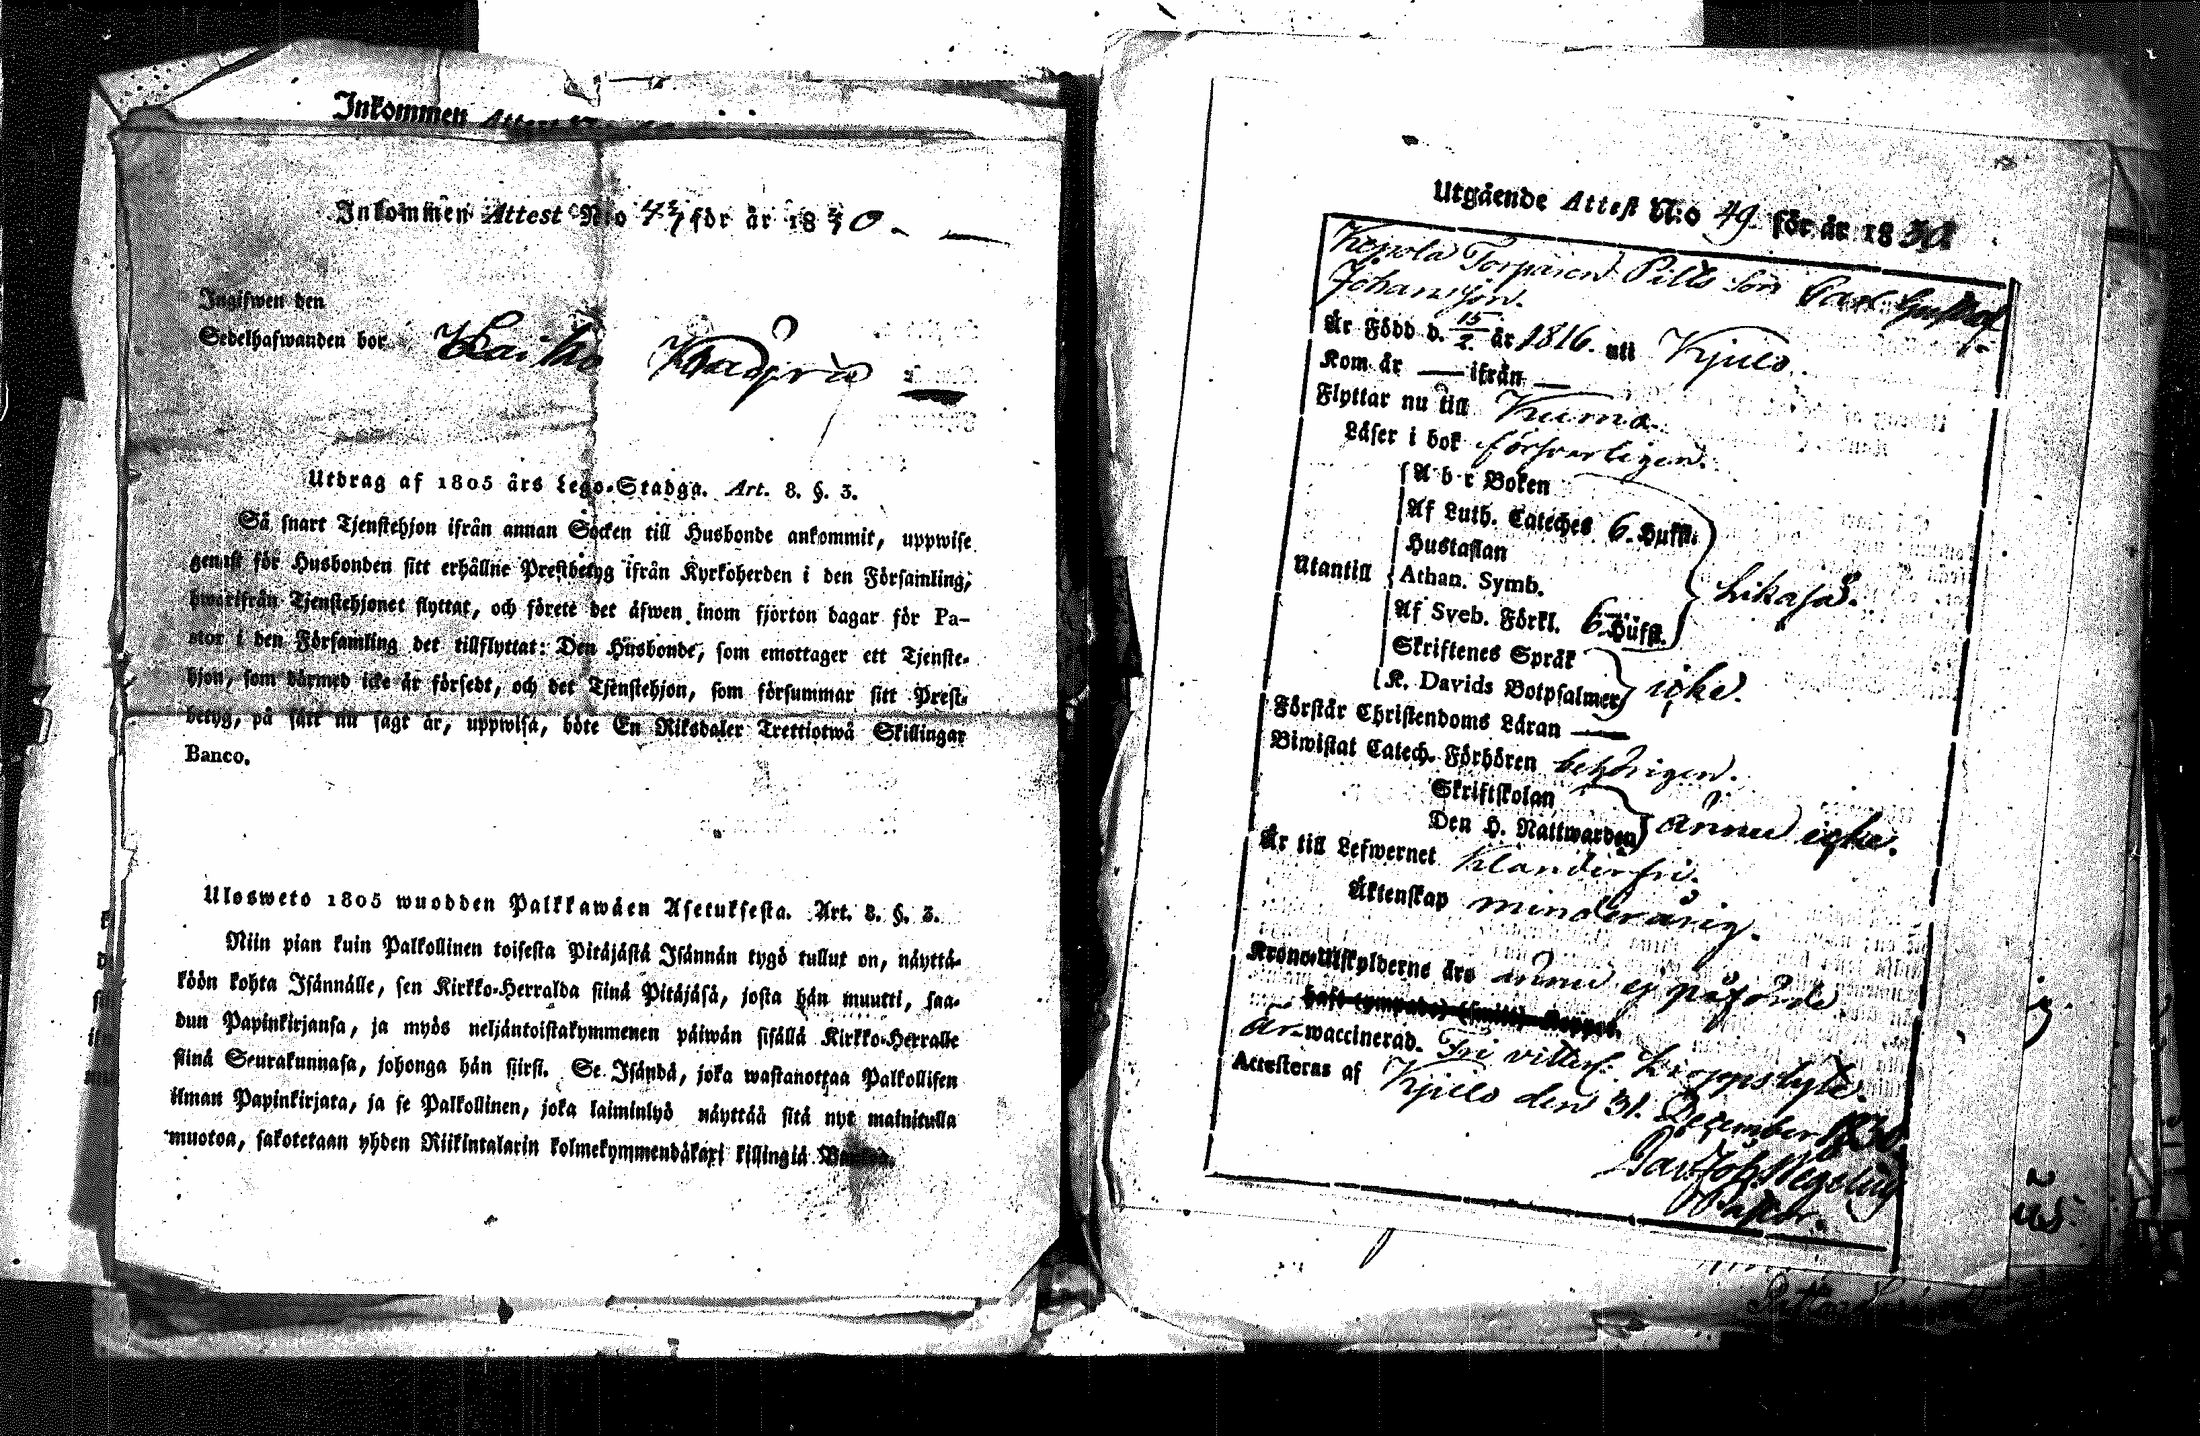 Inkommen Attest
Inkommen Attest N:o för år 18
Ingifwen den
Sedelhafwanden bor
Utdrag af 1805 års Lego-Stadga. Art. 8. §. 3.
Så snart Tjenstehjon ifrån annan Socken till Husbonde ankommit, uppwise
genast för Husbonden sitt erhållne Prestbetyg ifrån Kyrkoherden i den Församling,
hwarifrån Tjenstehjonet flyttat, och förete det äfwen inom fjorton dagar för Pa-
stor i den Församling det tillflyttat: Den Husbonde, som emottager ett Tjenste-
hjon, som därmed icke är försedt, och det Tjenstehjon, som försummar sitt Prest-
betyg, på sätt nu sagt är, uppwisa, böte En Riksdaler Trettiotwå Skillingar
Banco.
Ulosweto 1805 wuodden Palkkawäen Asetuksesta. Art. 8. §. 3.
Niin pian kuin Palkollinen toisesta Pitäjästä Isännän tygö tullut on, näyttä-
köön kohta Isännälle, sen Kirkko-Herralda siinä Pitäjäsä, josta hän muutti, saa-
dun Papinkirjansa, ja myös neljäntoistakymmenen päiwän sisällä Kirkko-Herralle
siinä Seurakunnasa, johonga hän siirsi. Se Isändä, joka wastanottaa Palkollisen
ilman Papinkirjata, ja se Palkollinen, joka laiminlyö näyttää sitä nyt mainitulla
muotoa, sakotetaan yhden Riikintalarin kolmekymmendäkaxi killingiä
Utgående Attest N:o 49 för år 1830
Torparen Pilts Son Carl Gustaf
Johansson.
Är Född d. 15/2. år 1816. uti Kjulo.
Kom år — ifrån —
Flyttar nu till Kumo.
Läser i bok försvarligen.
A b c Boken
Af Luth. Cateches 6. Hufst.
Hustaflan
Utantill Athan. Symb. likaså.
Af Sveb. Förkl. 6. Hufst.
Skriftenes Språk
K. Davids Botpsalmer icke.
Förstår Christendoms Läran —
Biwistat Catech. Förhören behörigen.
Skriftskolan
Den H. Nattwarden ännu icke.
Är till Lefwernet klanderfri.
Äktenskap minderårig.
Krono-Utskylderne äro ännu ej påförde.
är waccinerad. Fri vitterl. kroppslyte.
Attesteras af Kjulo den 31. December 1830.
Pastor.